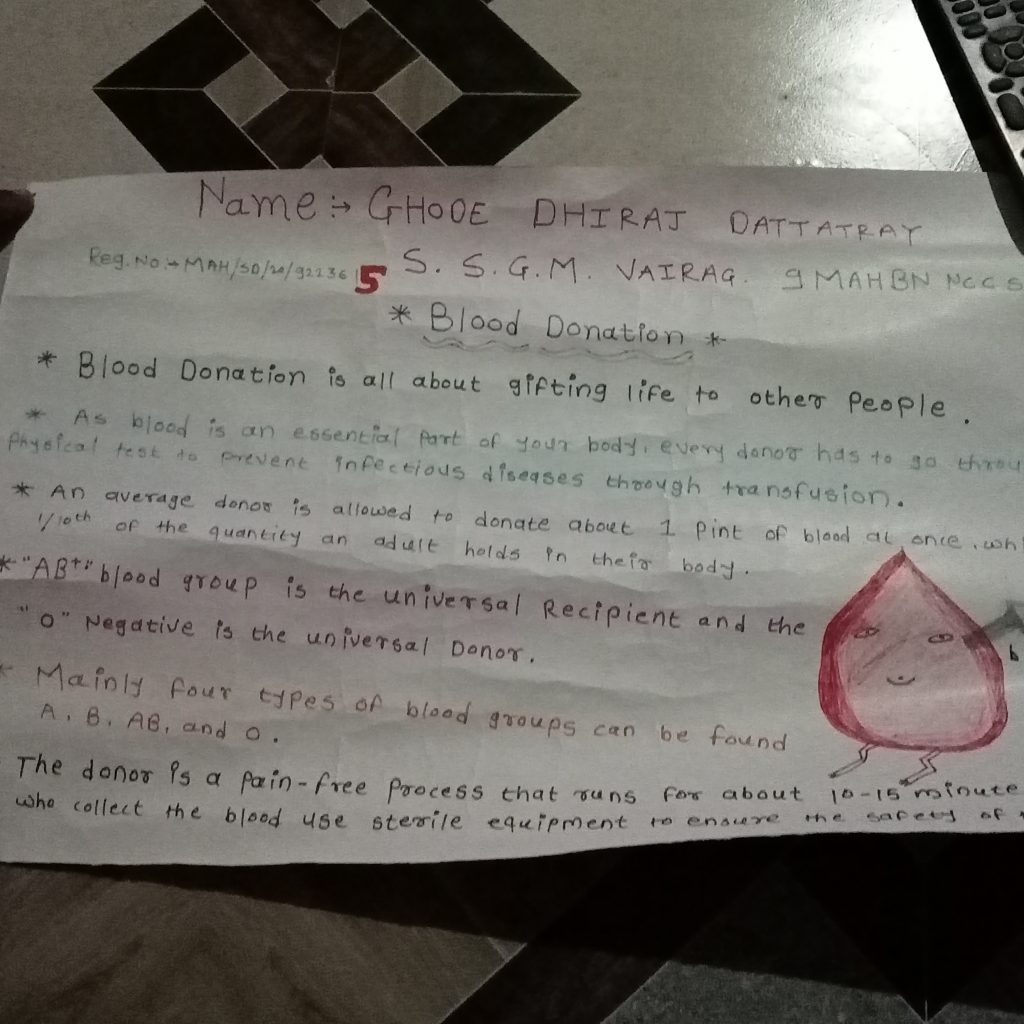 Name :→ GHODE DHIRAJ DATTATRAY
Reg. No :→ MAH/SD/20/922361 5 S. S. G. M. VAIRAG. 9 MAHBN NCC S
* Blood Donation *
* Blood Donation is all about gifting life to other People .
* As blood is an essential part of your body, every donor has to go throu
Physical test to prevent infectious diseases through transfusion.
* An average donor is allowed to donate about 1 Pint of blood at once, whi
1/10th of the quantity an adult holds in their body.
* "AB+" blood group is the universal Recipient and the
"O" Negative is the universal Donor.
* Mainly four types of blood groups can be found
A, B, AB, and O.
The donor is a pain-free Process that runs for about 10-15 minute
who collect the blood use sterile equipment to ensure the safety of